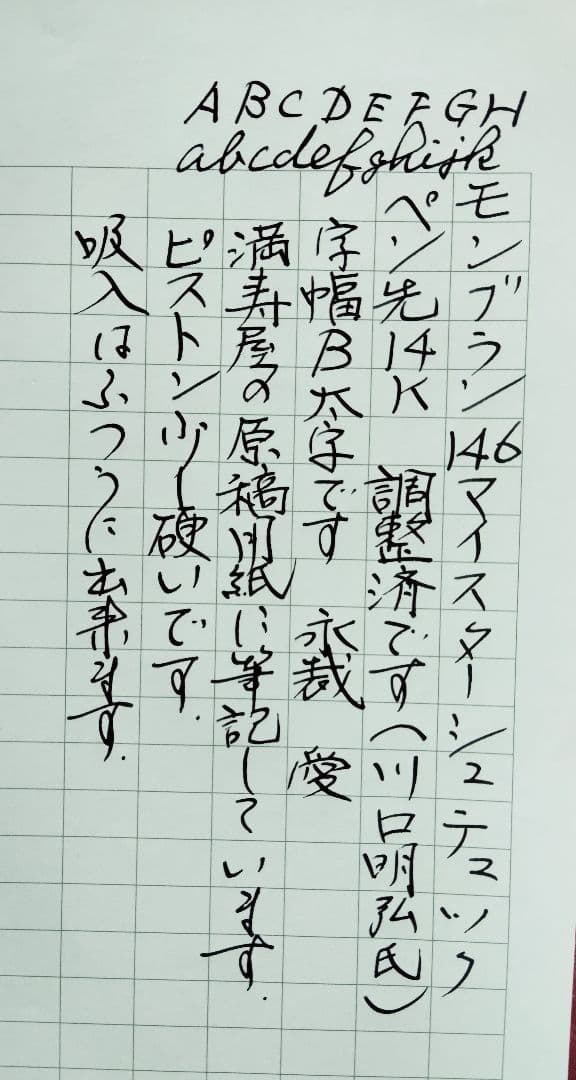 ABCDEFGH
abcdefghijk
モンブラン146マイスターシュテュック
ペン先14K 調整済です(川口明弘氏)
字幅B太字です 永裁 愛
満寿屋の原稿用紙に筆記しています.
ピストン少し硬いです.
吸入はふつうに出来ます.